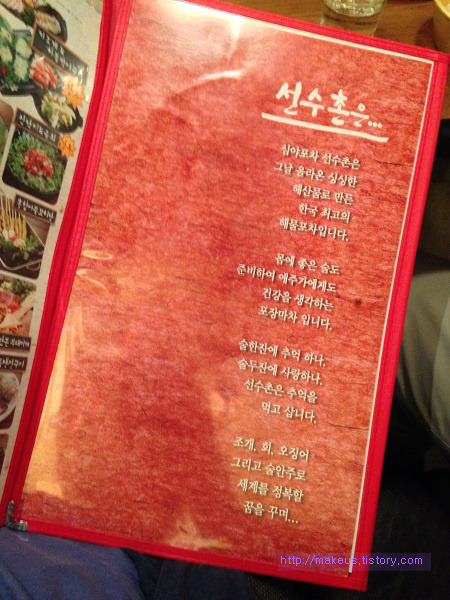 선수촌은...
심야포차 선수촌은
그날 올라온 싱싱한
해산물로 만든
한국 최고의
해물포차입니다.
몸에 좋은 술도
준비하여 애주가에게도
건강을 생각하는
포장마차 입니다.
술한잔에 추억 하나.
술두잔에 사랑하나.
선수촌은 추억을
먹고 삽니다.
조개, 회, 오징어
그리고 술안주로
세계를 정복할
꿈을 꾸며...
http://makeus.tistory.com